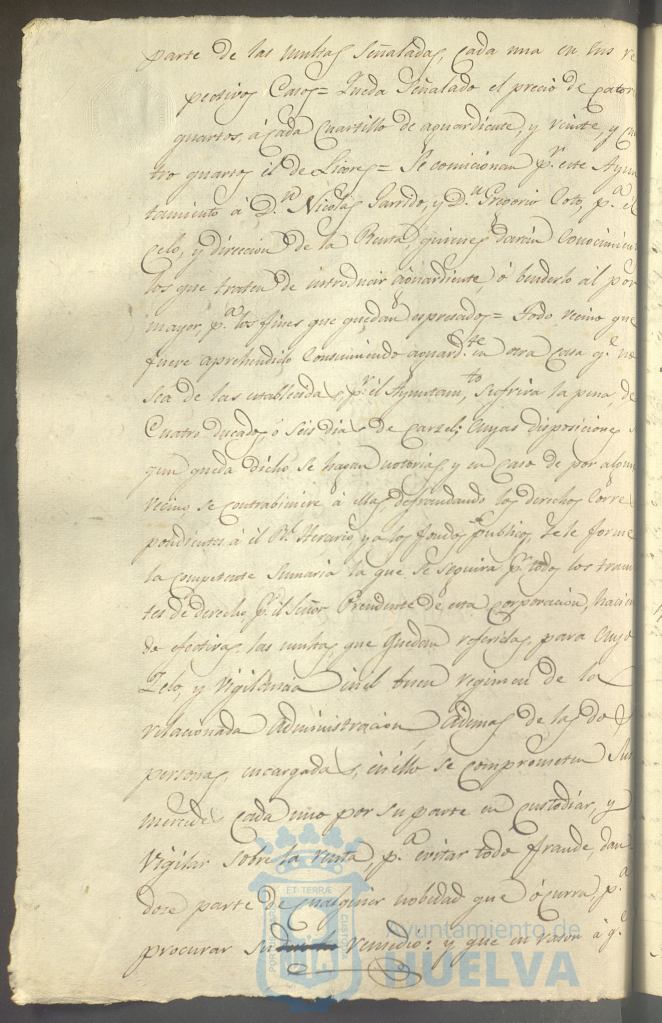 parte de las multas señaladas, cada una en sus re
pectivos Casos= Queda Señalado el precio de cator
quartos, á cada Cuartillo de aguardiente, y veinte y cua
tro quartos el de Licores= Se comicionan pr. este Ayun
tamiento á Dn. Nicolas Garrido, y Dn. Gregorio Coto, pa. el
Celo, y direccion de la Renta, quienes daran Conocimien
los que traten de introducir aguardiente, ó benderlo al por
mayor, pa. los fines que quedan espresados= Todo vecino que
fuere aprehendido Consumiendo aguardte. en otra casa qe. no
sea de las establecidas pr. el Ayuntamto. sufrira la pena, de
Cuatro ducados, ó seis dias de carzel; Cuyas disposiciones s
gun queda dicho, se hagan notorias, y en caso de por algun
vecino se contrabiniere á ellas defraudando los derechos Corre
pondientes á el Rl. Herario, y a los fondos publicos, se le forme
la competente Sumaria la que se seguira pr. todos los tram
tes de derecho pr. el Señor Presidente de esta Corporacion, hacien
do efectivas, las multas, que quedan referidas, para Cuyo
Zelo, y Vigilancia en el buen regimen de la
relacionada Administracion Ademas de las dos
personas, encargadas, en ello se comprometen Sus
mercedes cada uno por su parte en custodiar, y
Vigilar sobre la renta, pa. evitar todo fraude, dan
dose parte de cualquier nobedad que ócurra pa.
procurar su remedio: y que en razon á qe.
PORTUS MARIS ET TERRÆ CUSTODIA
Ayuntamiento de
HUELVA